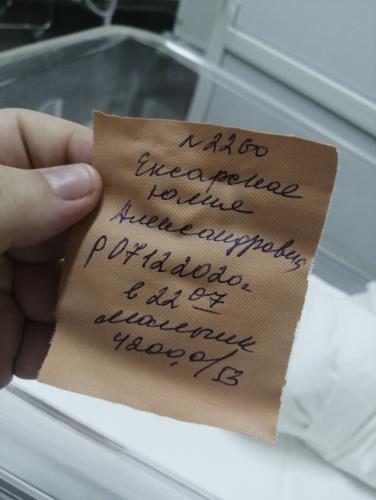 N2260
Ексарская
Юлия
Александровна
р 07122020г
в 22 07
мальчик
4200,0/53